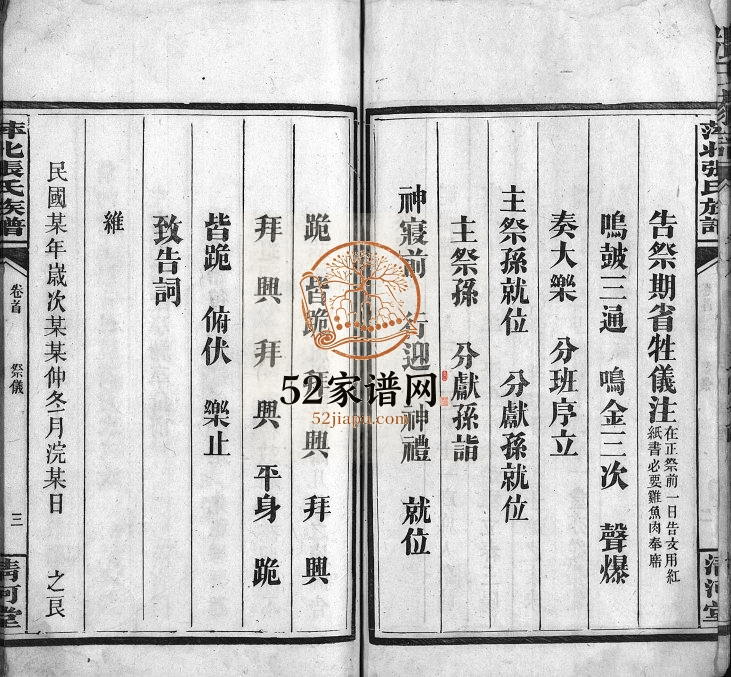 萍北張氏族譜
告祭期省牲儀注 在正祭前一日告文用紅紙書必要雞魚肉奉席
鳴鼓三通 鳴金三次 聲爆
奏大樂 分班序立
主祭孫就位 分獻孫就位
主祭孫 分獻孫詣
神寢前 行迎神禮 就位
跪 皆跪 拜興 拜興
拜興 拜興 平身 跪
皆跪 俯伏 樂止
致告詞
維
民國某年歲次某某仲冬月浣某日 之艮
萍北張氏族譜 卷首 祭儀 三 清河堂
清河堂
52家谱网
52jiapu.com